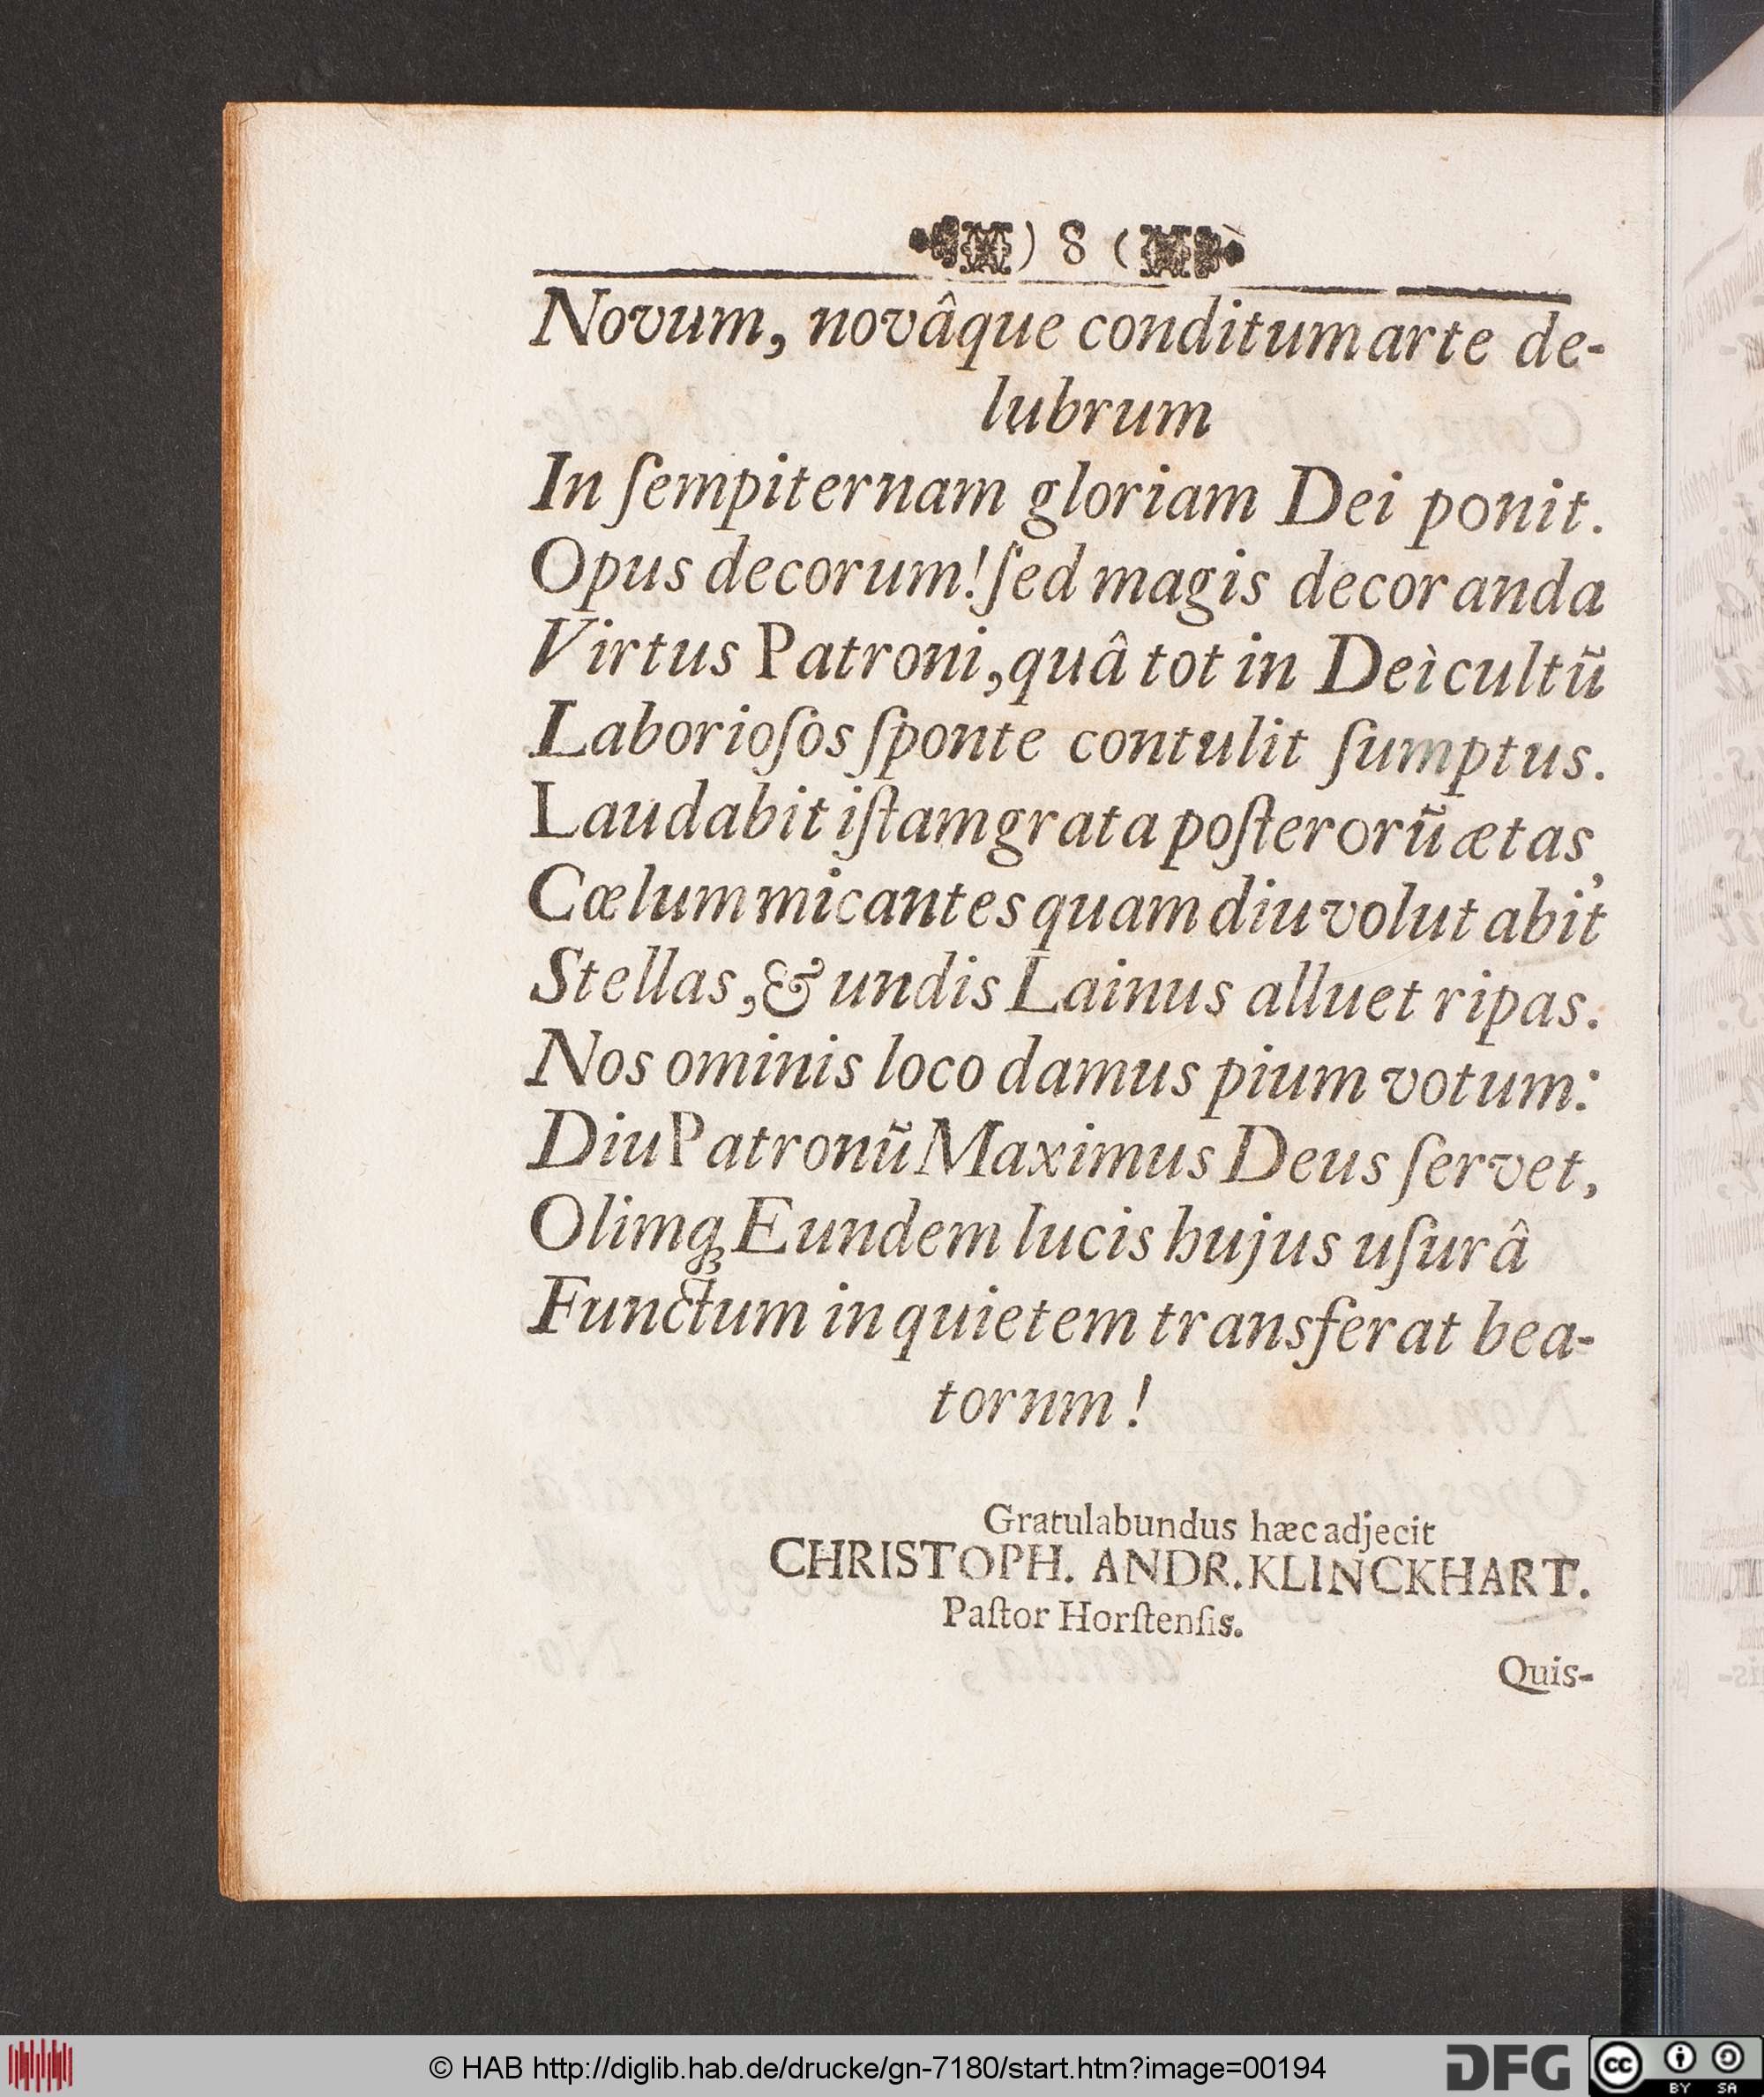 ) 8 (
Novum, novâque conditum arte de-
lubrum
In ſempiternam gloriam Dei ponit.
Opus decorum! ſed magis decoranda
Virtus Patroni, quâ tot in Dei cultũ
Laborioſos ſponte contulit ſumptus.
Laudabit iſtam grata poſterorũ ætas,
Cœlum micantes quam diu volutabit
Stellas, & undis Lainus alluet ripas.
Nos ominis loco damus pium votum:
Diu Patronũ Maximus Deus ſervet,
Olimq; Eundem lucis hujus uſurâ
Functum in quietem transferat bea-
tornm!
Gratulabundus hæc adjecit
CHRISTOPH. ANDR. KLINCKHART.
Paſtor Horſtenſis.
Quis-
© HAB http://diglib.hab.de/drucke/gn-7180/start.htm?image=00194
DFG
cc BY SA